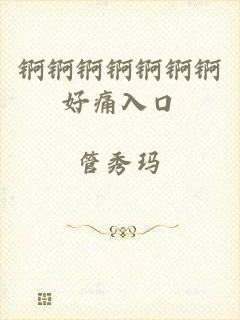 锕锕锕锕锕锕锕
好痛入口
管秀玛